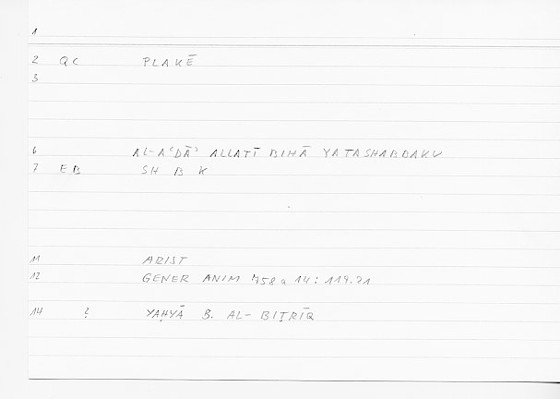 1
2 QC PLAKĒ
3
6 AL-AʿḌĀʾ ALLATĪ BIHĀ YATASHABBAKU
7 EB SH B K
11 ARIST
12 GENER ANIM 758a 14 : 119.21
14 ? YAḤYĀ B. AL-BIṬRĪQ